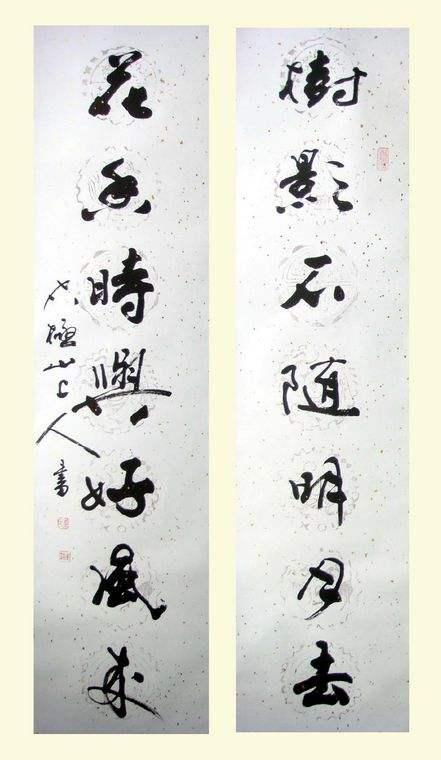 樹影不随明月去
花香時與好風來
極上人書